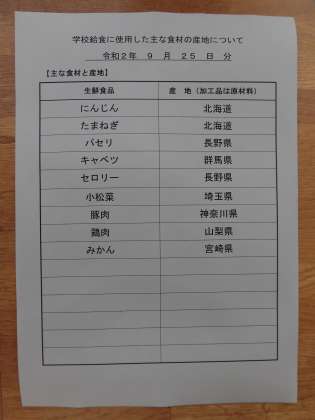 学校給食に使用した主な食材の産地について
令和2年 9 月 25 日 分
【主な食材と産地】
生鮮食品 産 地（加工品は原材料）
にんじん 北海道
たまねぎ 北海道
パセリ 長野県
キャベツ 群馬県
セロリー 長野県
小松菜 埼玉県
豚肉 神奈川県
鶏肉 山梨県
みかん 宮崎県